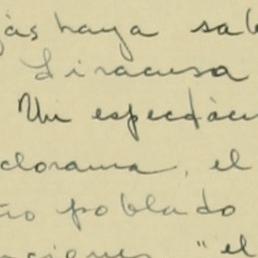 jás haya sal
Siracusa
Un espectácu
clorama, el
ño poblado
"el